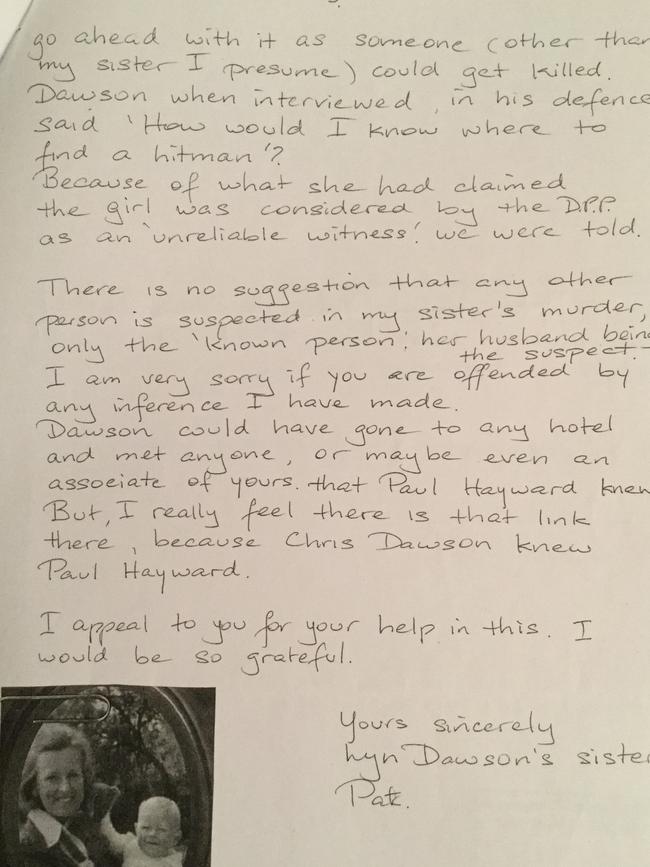 go ahead with it as someone (other than
my sister I presume) could get killed.
Dawson when interviewed, in his defence
said 'How would I know where to
find a hitman'?
Because of what she had claimed
the girl was considered by the D.P.P.
as an 'unreliable witness'. we were told.
There is no suggestion that any other
person is suspected in my sister's murder,
only the 'known person', her husband being
the suspect.
I am very sorry if you are offended by
any inference I have made.
Dawson could have gone to any hotel
and met anyone, or maybe even an
associate of yours. that Paul Hayward knew
But, I really feel there is that link
there, because Chris Dawson knew
Paul Hayward.
I appeal to you for your help in this. I
would be so grateful.
Yours sincerely
Lyn Dawson's sister
Pat.